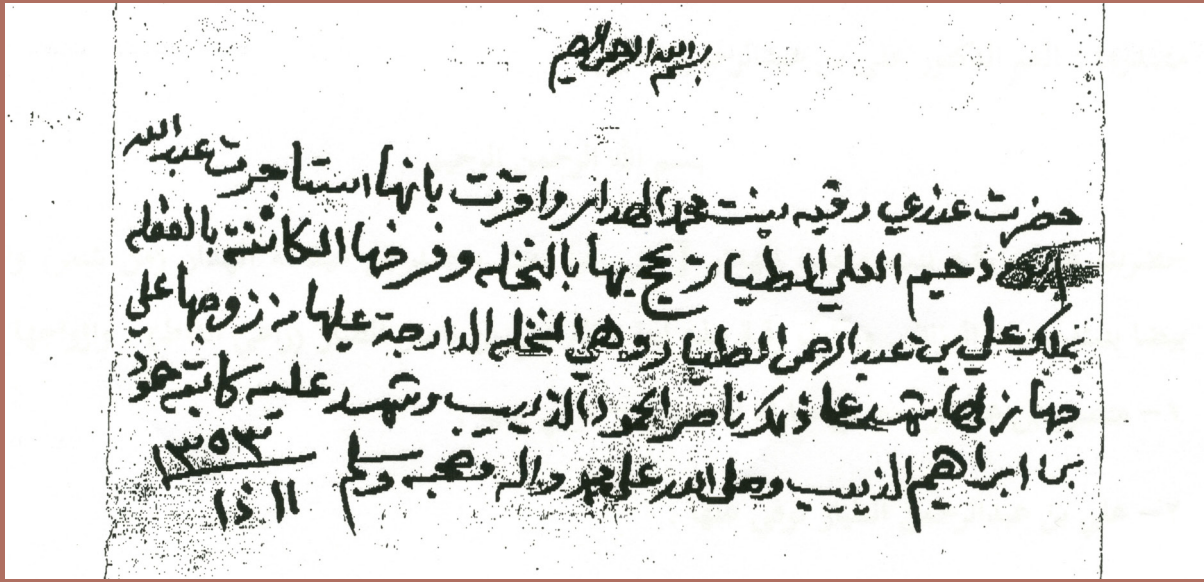 بسم الله الرحمن الرحيم
حضرت عندي رقيه بنت محمد الهدلق واقرت بانها استاجرت عبدالله
دحيم العلي المطيار يحج بها بالنخله وفرخها الكائنة بالعقله
بملك علي بن عبد الرحمن المطيار وهي النخله الدارجة عليها من زوجها علي
جهاز لها شهد على ذلك ناصر الحمود الذييب وشهد عليه كاتبه حمود
بن ابراهيم الذييب وصلى الله على محمد واله وصحبه وسلم
١٣٥٣
١١ ذا